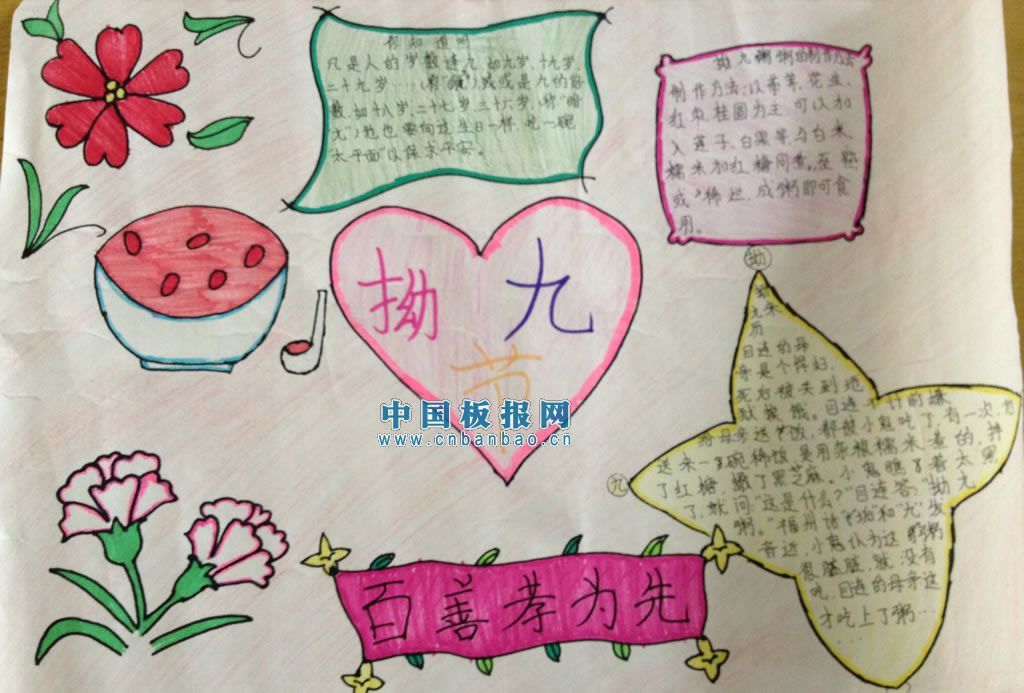 你知道吗
凡是人的岁数逢九,如九岁,十九岁,
二十九岁
数,如十八岁,二十七岁,三十六岁,(称"暗
九")他也要向过生日一样,吃一碗
太平面"以保求平安。
拗九粥粥的制作方法
制作方法:以荸荠、花生、
红枣、桂圆为主,可以加
入莲子、白果等,与白米、
糯米和红糖同煮。至熟
或稀烂,成粥即可食
用。
拗九节
中国板报网
www.cnbanbao.cn
拗
九
拗
九来
历
目连的母
亲是个悍妇,
死后被关到地
狱挨饿。目连
给母亲送饭,都被小鬼吃了,有一次,他
送来一碗稀饭,是用杂粮糯米煮的,拌
了红糖,撒了黑芝麻。小鬼瞧着太黑
了,就问:"这是什么?"目连答:"拗九
粥。"福州话"垢"和"九"发
音近,小鬼认为这粥
很脏脏,就没有
吃,目连的母亲这
才吃上了粥…
百善孝为先